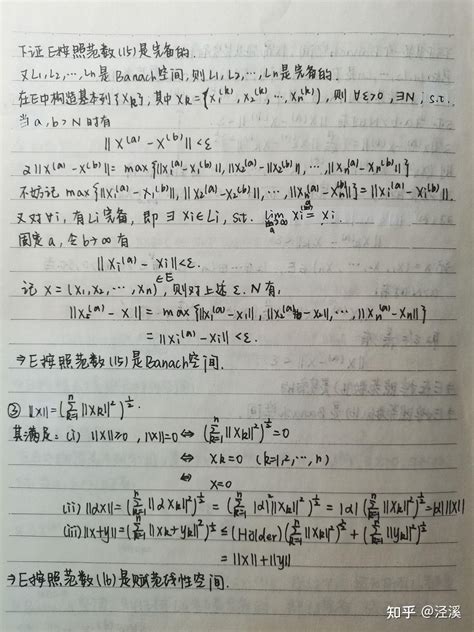 下证E按照范数(15)是完备的.
又L₁, L₂, …, Lₙ是Banach空间, 则L₁, L₂, …, Lₙ是完备的.
在E中构造基本列{Xₖ}, 其中Xₖ={x₁⁽ᵏ⁾, x₂⁽ᵏ⁾, … xₙ⁽ᵏ⁾}, 则 ∀ε>0, ∃N, s.t.
当a, b>N时有
||X⁽ᵃ⁾-X⁽ᵇ⁾||<ε
又||X⁽ᵃ⁾-X⁽ᵇ⁾||= max{||x₁⁽ᵃ⁾-x₁⁽ᵇ⁾||, ||x₂⁽ᵃ⁾-x₂⁽ᵇ⁾||, …, ||xₙ⁽ᵃ⁾-xₙ⁽ᵇ⁾||}
不妨记 max{||x₁⁽ᵃ⁾-x₁⁽ᵇ⁾||, ||x₂⁽ᵃ⁾-x₂⁽ᵇ⁾||, …, ||xₙ⁽ᵃ⁾-xₙ⁽ᵇ⁾||}=||xᵢ⁽ᵃ⁾-xᵢ⁽ᵇ⁾||.
又对∀i, 有Lᵢ完备, 即∃ xᵢ∈Lᵢ, s.t. lim xᵢ⁽ᵃ⁾= xᵢ.
固定a, 令b→∞有
||xᵢ⁽ᵃ⁾-xᵢ||<ε.
记 X=(x₁, x₂, …, xₙ)∈E, 则对上述ε. N有:
-X||= max{||x₁⁽ᵃ⁾-x₁||, -x₂||, …, ||xₙ⁽ᵃ⁾-xₙ||}
=||xᵢ⁽ᵃ⁾-xᵢ||<ε.
⇒E按照范数(15)是Banach空间.
③ ||x||=(∑ₖ₌₁ⁿ||xₖ||²)^½.
其满足: (i) ||x||≥0, ||x||=0 ⇔ (∑ₖ₌₁ⁿ||xₖ||²)^½=0
⇔ xₖ=0 (k=1,2,…,n)
⇔ x=0
(ii) ||αx||=(∑ₖ₌₁ⁿ||αxₖ||²)^½=(∑ₖ₌₁ⁿ|α|²||xₖ||²)^½=|α|(∑ₖ₌₁ⁿ||xₖ||²)^½=|α|||x||
(iii) ||x+y||=(∑ₖ₌₁ⁿ||xₖ+yₖ||²)^½≤(Hölder)(∑ₖ₌₁ⁿ||xₖ||²)^½+(∑ₖ₌₁ⁿ||yₖ||²)^½
=||x||+||y||
⇒E按照范数(16)是赋范线性空间.
知乎 @泾溪